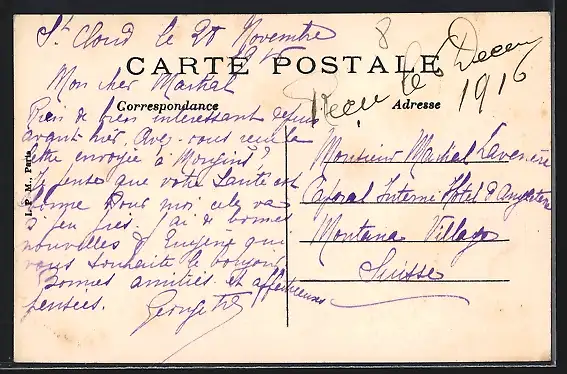 St Cloud le 28 Novembre
1916
CARTE POSTALE
8
Reçu le 6 Decem
1916
Correspondance
Adresse
Mon cher Martial
Rien de bien intéressant depuis
avant-hier. Avez-vous reçu la
lettre envoyée à Morgins ?
Je pense que votre Santé est
bonne Pour moi cela va
à peu près. J'ai de bonnes
nouvelles d'Eugène qui
vous souhaite le bonjour
Bonnes amitiés et affectueuses
pensées.
George
Monsieur Martial
Caporal Interné Hôtel d'Angleterre
Montana Village
Suisse
L. P. M., Paris